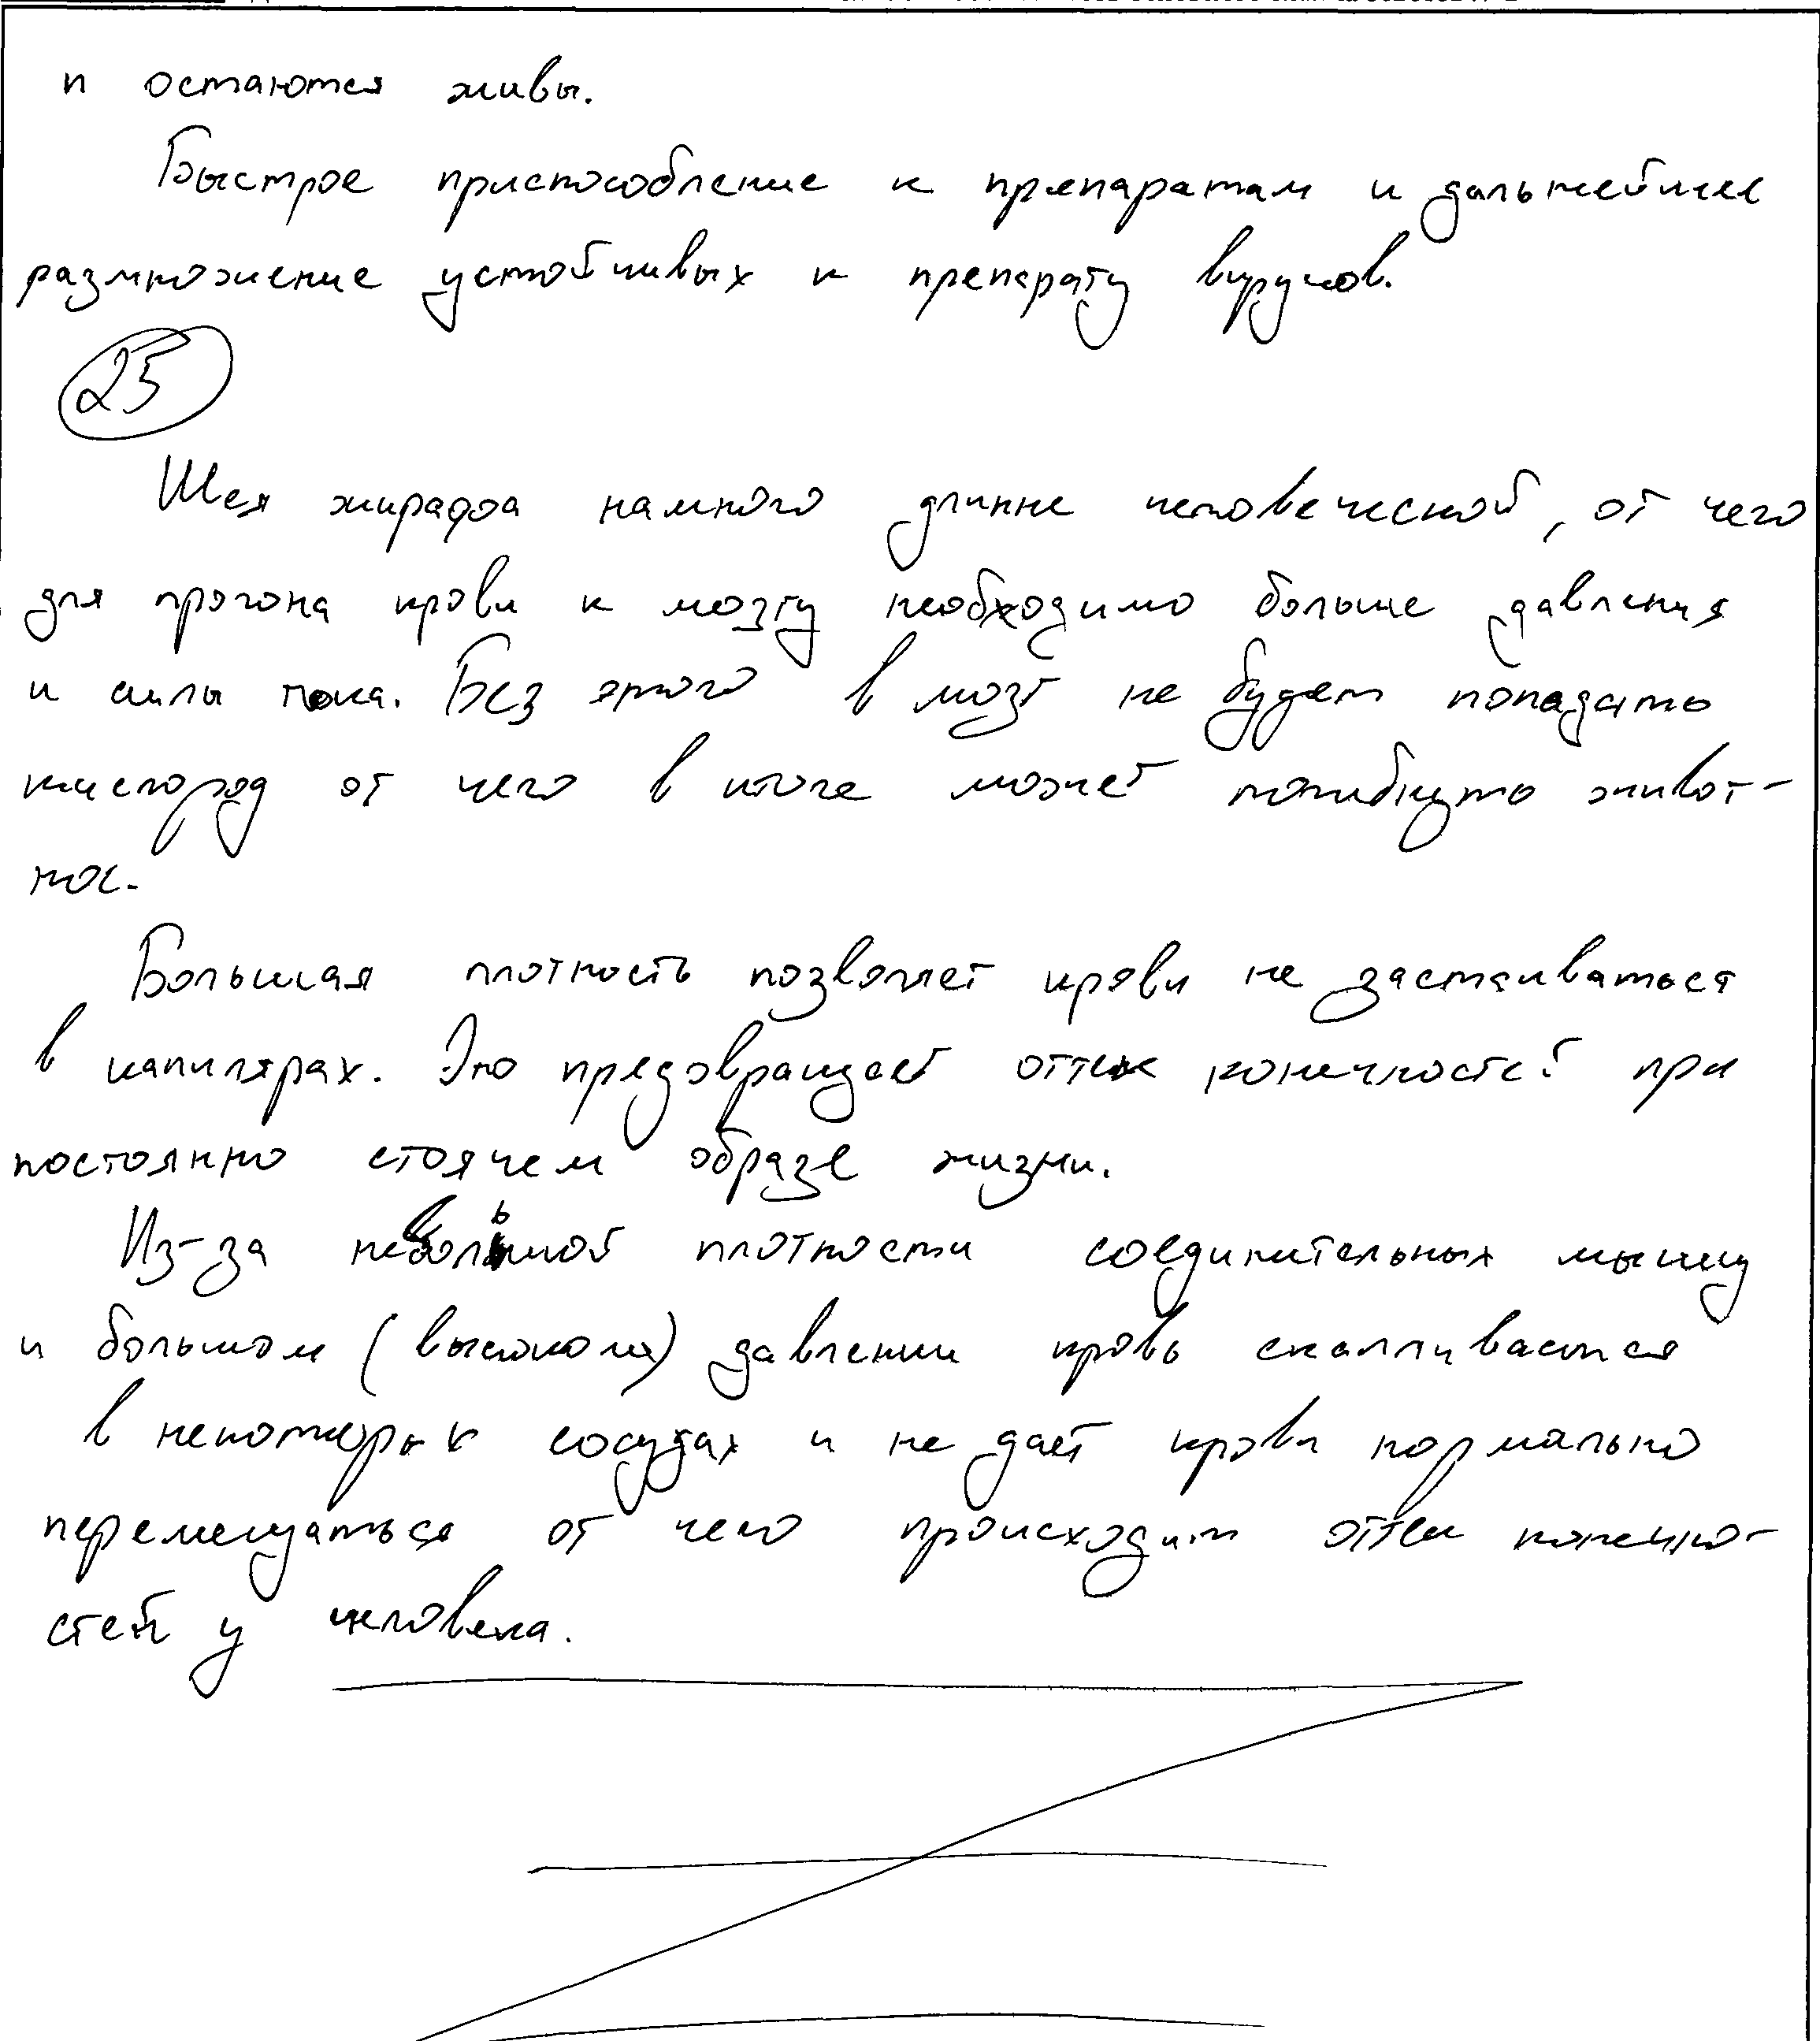 и остаются живы.
Быстрое приспособление к препаратам и дальнейшее
размножение устойчивых к препарату вирусов.
25
Шея жирафа намного длинне человеческой, от чего
для прогона крови к мозгу необходимо больше давления
и силы тока. Без этого в мозг не будет попадать
кислород от чего в итоге может погибнуть живот-
ное.
Большая плотность позволяет крови не застаиваться
в капилярах. Это предовращает оттек конечностей при
постоянно стоячем образе жизни.
Из-за небольшой плотности соединительных мышц
и большом (высоком) давлении кровь скапливается
в некоторых сосудах и не даёт крови нормально
перемещаться от чего происходит оттек конечно-
стей у человека.